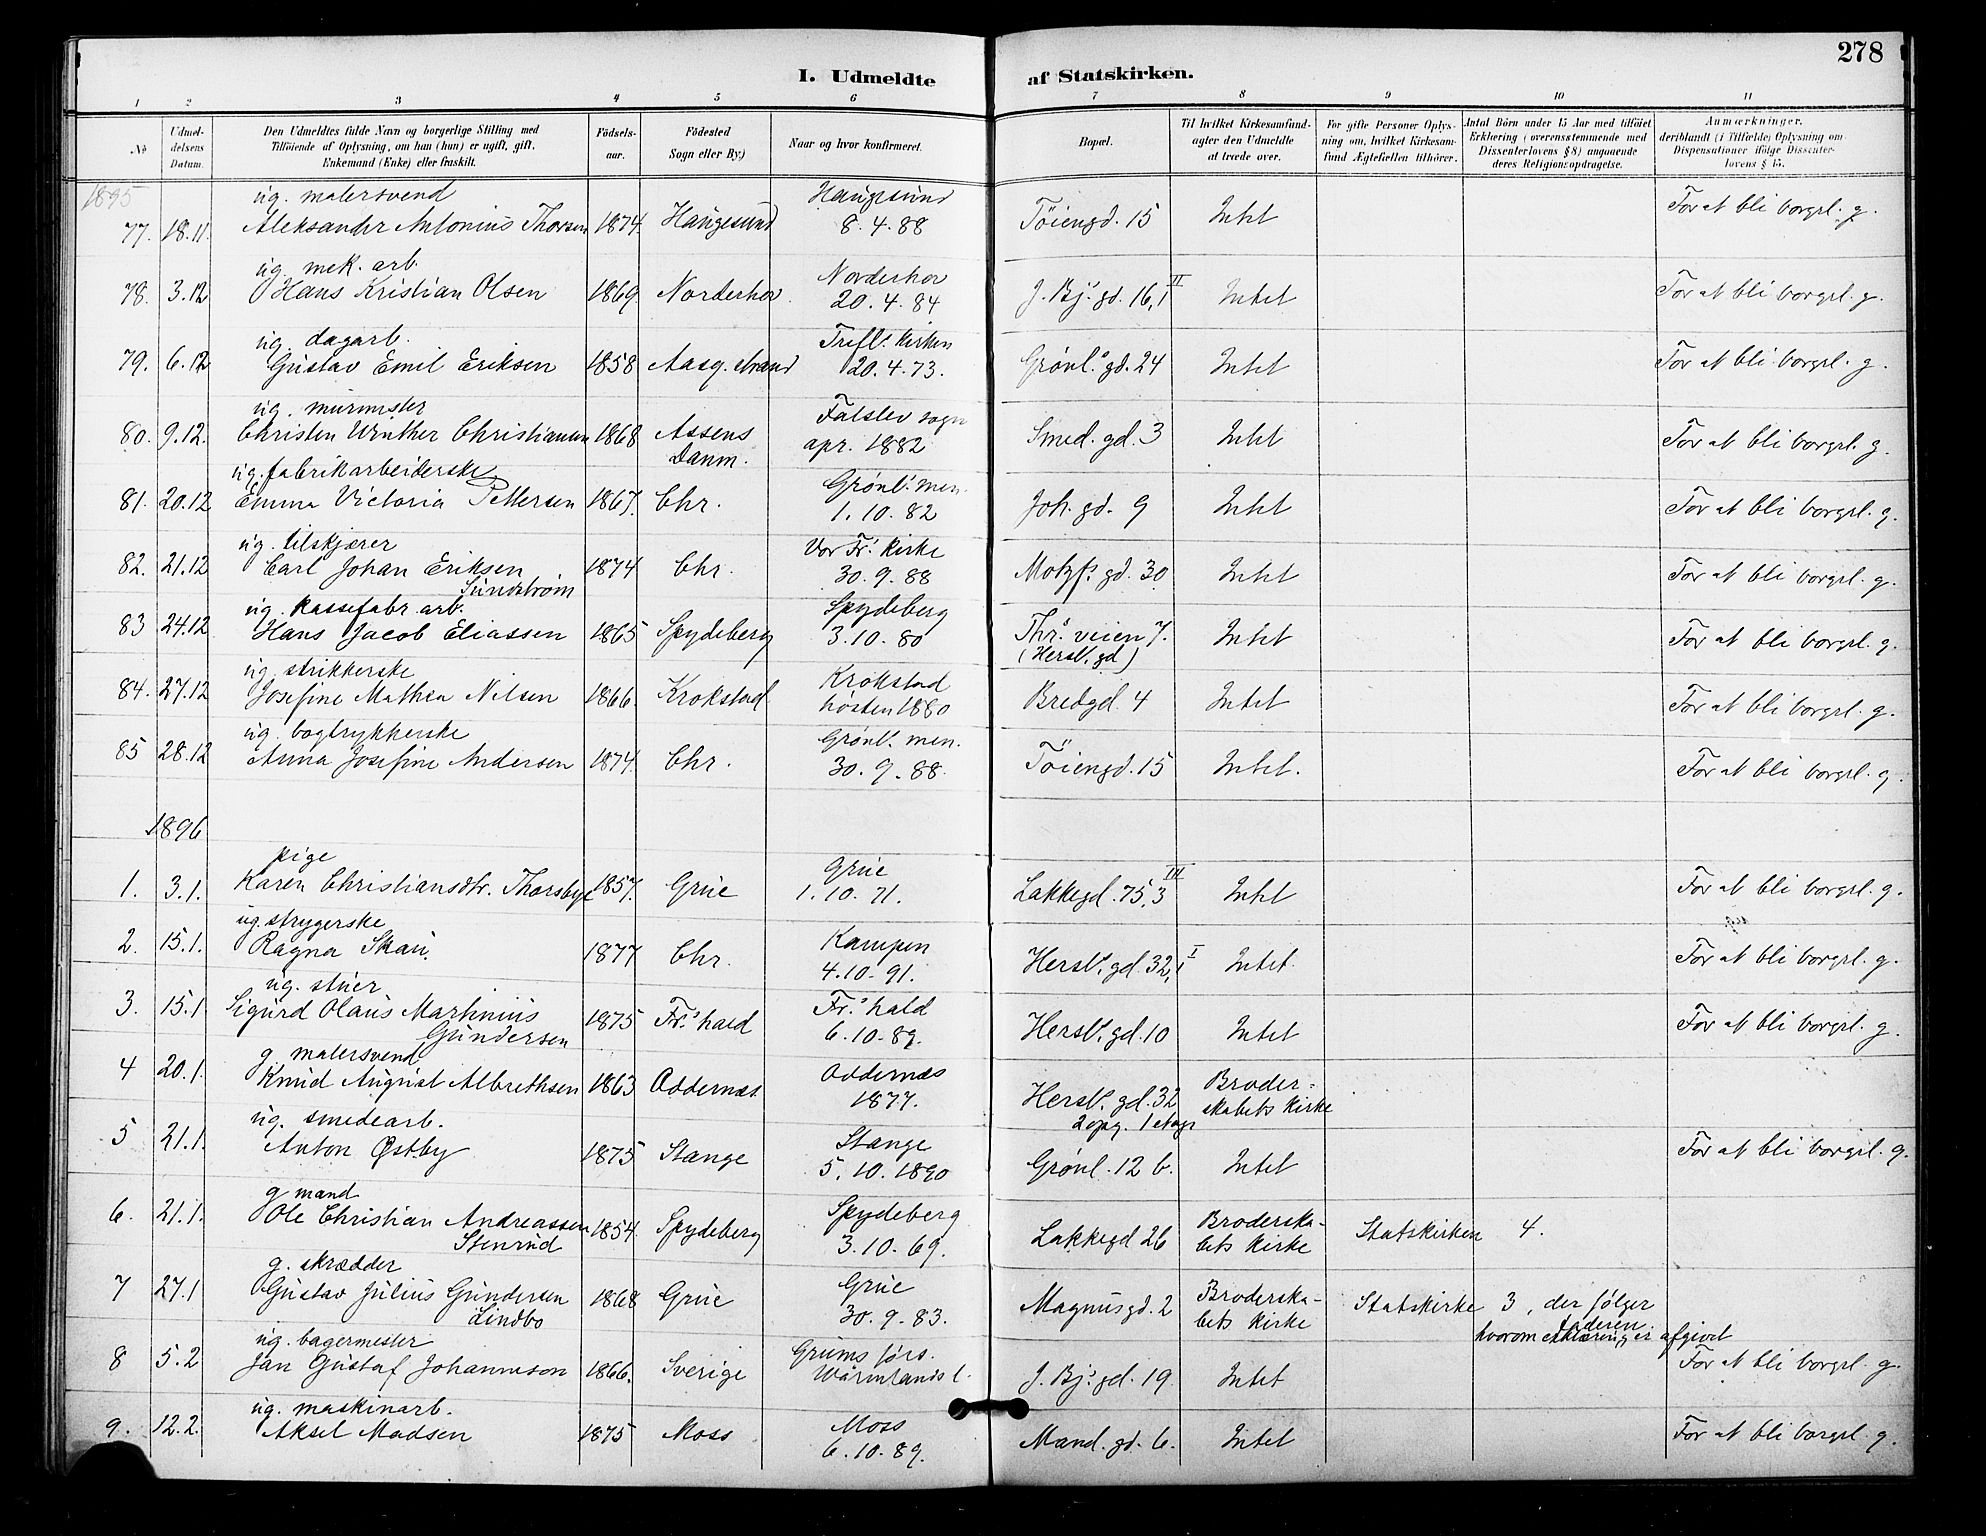 278
I. Udmeldte af Statskirken.
1 2 3 4 5 6 7 8 9 10 11
No
Udmel-
delsens
Datum.
Den Udmeldtes fulde Navn og borgerlige Stilling med
Tilføiende af Oplysning, om han (hun) er ugift, gift,
Enkemand (Enke) eller fraskilt.
Fødsels-
aar.
Fødested
Sogn eller By.)
Naar og hvor konfirmeret.
Bopæl.
Til hvilket Kirkesamfund-
agter den Udmeldte
at træde over.
For gifte Personer Oplys-
ning om, hvilket Kirkesam-
fund Ægtefællen tilhører.
Antal Børn under 15 Aar med tilføiet
Erklæring (overensstemmende med
Dissenterlovens § 8) angaaende
deres Religionsopdragelse.
Anmærkninger,
deriblandt (i Tilfælde) Oplysning om
Dispensationer ifølge Dissenter-
lovens § 15.
1895
ug. malersvend Haugesund
77. 18.11. Aleksander Antonius Thorsen 1874. Haugesund 8.4.88 Töiengd. 15 Intet For at bli borgrl. g.
ug. mek. arb. Norderhov
78. 3.12 Hans Kristian Olsen 1869 Norderhov. 20.4.84 J. Bj.s gd. 16, 1 II Intet For at bli borgrl. g.
ug. dagarb. Trefl.s Kirken
79. 6.12 Gustav Emil Eriksen 1858 Aasg.strand 20.4.73. Grønl.s gd. 24 Intet For at bli borgrl. g.
ug. murmester Falslev sogn
80. 9.12. Christen Winther Christiansen 1868 Assens Danm. apr. 1882 Smed. gd. 3 Intet For at bli borgrl. g.
ug. fabrikarbeiderske Grønl. men.
81. 20.12 Emma Victoria Pettersen 1867. Chr. 1.10.82 Joh. gd. 9 Intet For at bli borgrl. g.
ug. tilskjærer Vor Fr.s Kirke
82. 21.12 Carl Johan Eriksen Sundstrøm 1874 Chr. 30.9.88 Motzf.s gd. 30 Intet For at bli borgrl. g.
ug. kassefabr. arb. Spydeberg
83 24.12 Hans Jacob Eliassen 1865 Spydeberg 3.10.80 Thr.s veien 7. (Hersl. gd) Intet For at bli borgrl. g.
ug. strikkerske Krokstad
84. 27.12 Josefine Mathea Nilsen 1866. Krokstad høsten 1880 Bredgd. 4 Intet For at bli borgrl. g.
ug. bogtrykkerske Grønl. men.
85 28.12 Anna Josefine Andersen 1874. Chr. 30.9.88. Töiengd. 15 Intet. For at bli borgrl. g.
1896
pige Grue
1. 3.1. Karen Christiansdtr. Thorsbye 1857. Grue 1.10.71. Lakkegd. 75, 3 III Intet For at bli borgrl. g.
ug. strygerske Kampen
2. 15.1. Ragna Skau. 1877 Chr. 4.10.91. Hersl. gd. 32, 1 I Intet. For at bli borgrl. g.
ug. stuer Fr.s hald
3. 15.1 Sigurd Olaus Martinius Gundersen 1875 Fr.s hald 6.10.89. Hersl. gd. 10 Intet For at bli borgrl. g.
g. malersvend Oddernæs
4 20.1. Knud August Albrethsen 1863 Oddernæs. 1877. Hersl. gd. 32 2 opg. 1 etage Broder-
skabets Kirke
ug. smedearb. Stange
5 21.1. Anton Østby 1875 Stange 5.10.1890 Grønl. 12 b. Intet For at bli borgrl. g.
g mand Spydeberg
6. 21.1. Ole Christian Andreassen Stenrud 1854. Spydeberg 3.10.69. Lakkegd 26 Broderska-
bets Kirke Statskirken 4.
g. skrædder Grue
7 27.1 Gustav Julius Gundersen Lindbo 1868 Grue 30.9.83. Magnusgd. 2 Broderska-
bets Kirke Statskirke 3, der følger
faderen.
hvorom erklæring er afgivet
ug. bagermester Grums förs.
8 5.2 Jan Gustaf Johannson 1866. Sverige Wärmlands l. J. Bj.s gd. 19 Intet For at bli borgrl. g.
ug. maskinarb. Moss
9. 12.2. Aksel Madsen 1875 Moss 6.10.89. Mand. gd. 6. Intet For at bli borgrl. g.